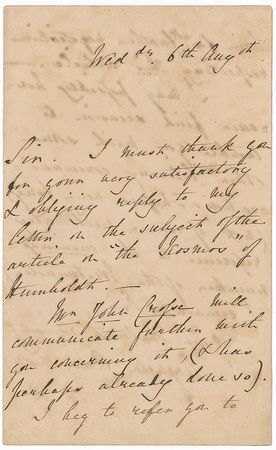 Wed dy. 6th Augst.
Sir. I must thank you
for your very satisfactory
& obliging reply to my
letter on the subject of the
article on "the Kosmos" of
Humboldt. —
Mr John Crosse will
communicate further with
you concerning it, (& has
perhaps already done so).
I beg to refer you to